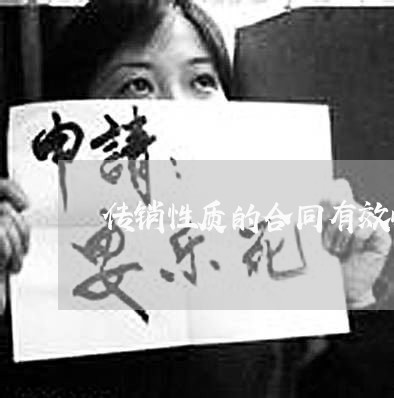 申請：
传销性质的合同有效
要乐